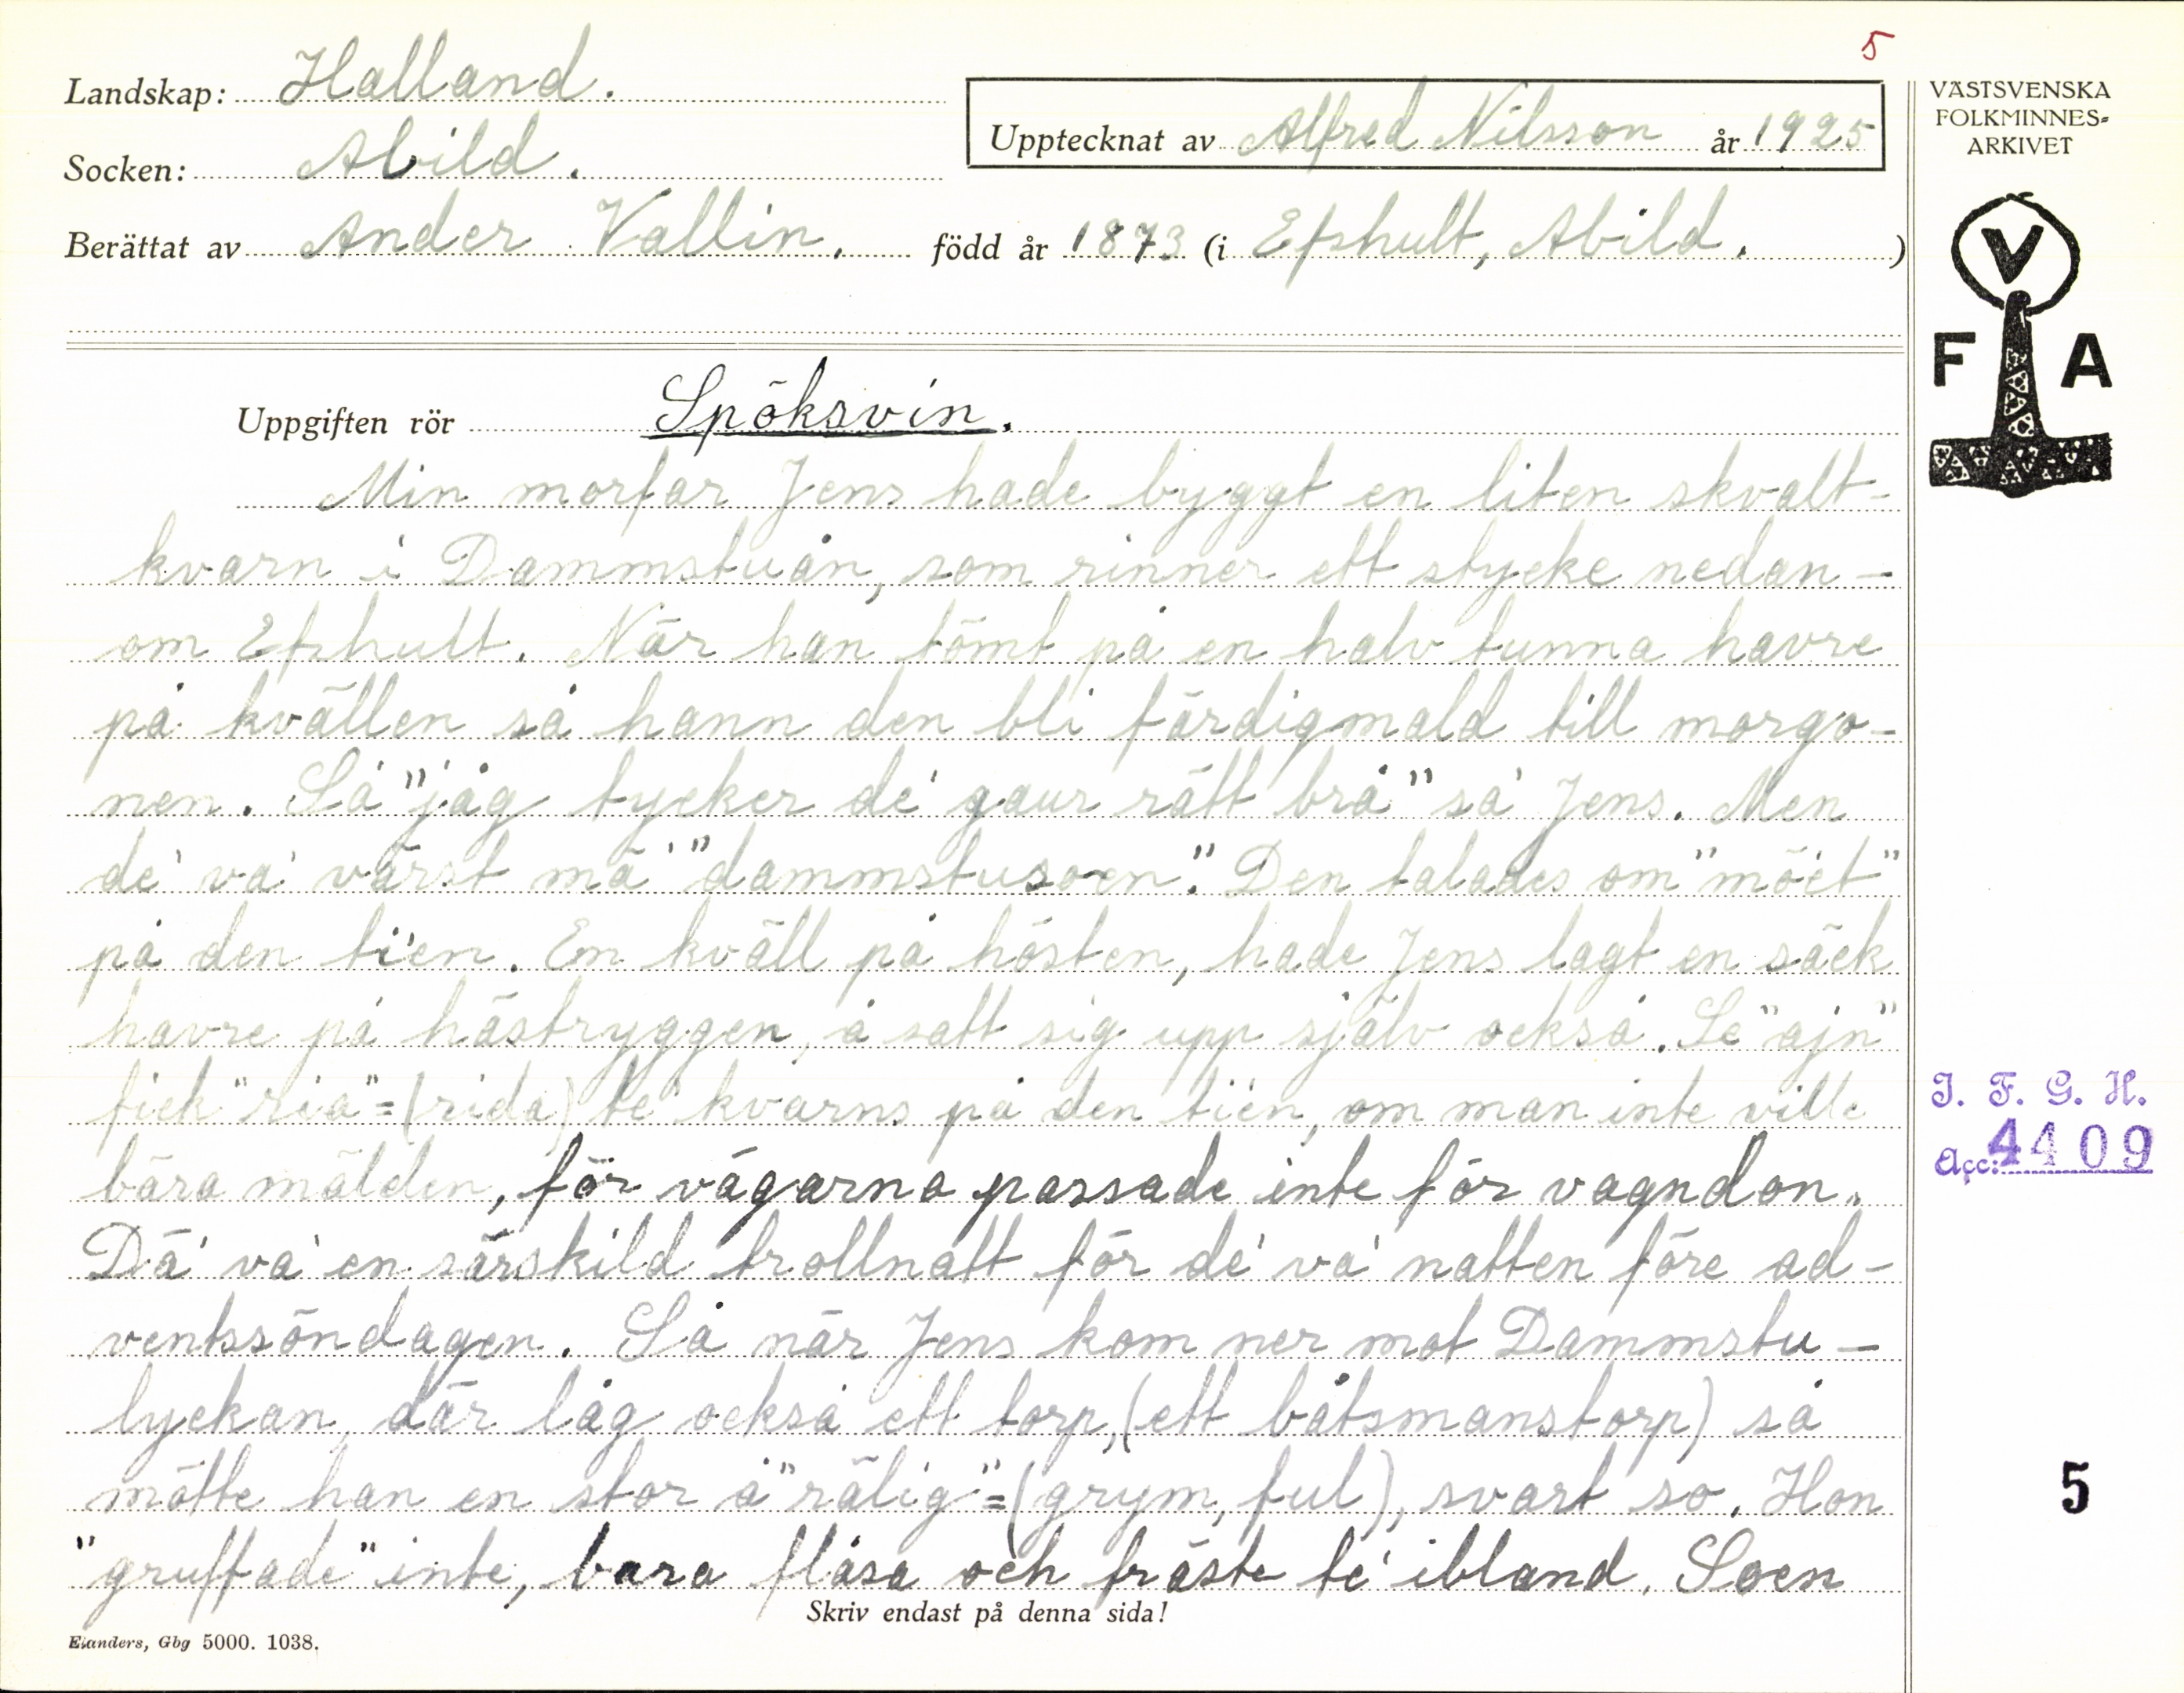 5
Landskap: Halland.
Upptecknat av Alfred Nilsson år 1925
Socken: Abild.
Berättat av Ander Vallin. född år 1873 (i Efshult, Abild. )
VÄSTSVENSKA
FOLKMINNES-
ARKIVET
V
F A
Uppgiften rör Spöksvin.
Min morfar Jens hade byggt en liten skvalt-
kvarn i Dammstuån, som rinner ett stycke nedan-
om Efshult. När han tömt på en halv tunna havre
på kvällen så hann den bli färdigmald till morgo-
nen. Så "jåg tycker de' gaur rätt brå" sa' Jens. Men
de' va' värst mä' "dammstusoen". Den talades om "möet"
på den ti'en. En kväll på hösten, hade Jens lagt en säck
havre på hästryggen, å satt sig upp själv också. Se "ajn"
fick "ria"=(rida) te' kvarns på den tién, om man inte ville
bära mälden, för vägarna passade inte för vagndon.
Dä' va' en särskild trollnatt för de' va' natten före ad-
ventssöndagen. Så när Jens kom ner mot Dammstu-
lyckan, där låg också ett torp, (ett båtsmanstorp) så
mötte han en stor å "rälig"=(grym, ful), svart so. Hon
"gruffade" inte, bara flåsa och fräste te' ibland. Soen
Skriv endast på denna sida!
Elanders, Gbg 5000. 1038.
I. F. G. H.
Acc: 4409
5